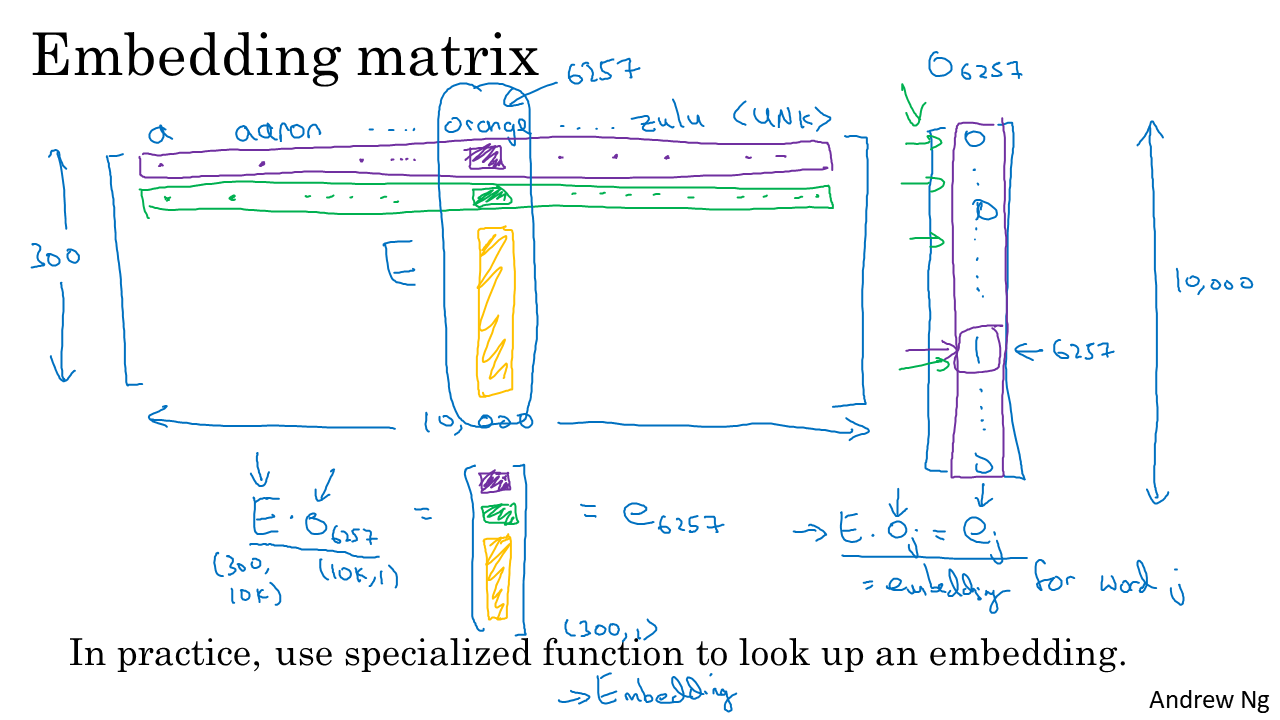 Embedding matrix
6257
O6257
a aaron .... orange .... zulu <UNK>
0
0
300
E
10,000
1 ← 6257
10,000
0
E · O6257 = = e6257
(300, 10K) (10K,1)
→ E. Oj = ej
= embedding for word j
(300,1)
In practice, use specialized function to look up an embedding.
→ Embedding
Andrew Ng